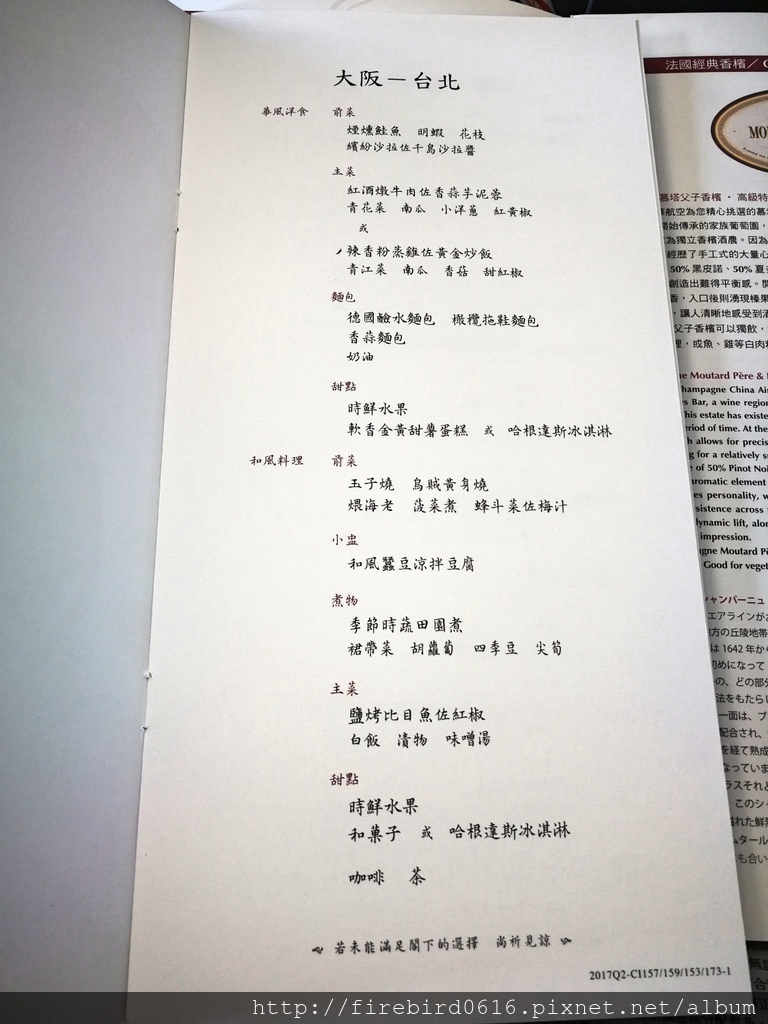 大阪－台北
華風洋食 前菜
煙燻鮭魚 明蝦 花枝
繽紛沙拉佐千島沙拉醬
主菜
紅酒燉牛肉佐香蒜芋泥蓉
青花菜 南瓜 小洋蔥 紅黃椒
或
辣香粉蒸雞佐黃金炒飯
青江菜 南瓜 香菇 甜紅椒
麵包
德國鹼水麵包 橄欖拖鞋麵包
香蒜麵包
奶油
甜點
時鮮水果
軟香金黃甜薯蛋糕 或 哈根達斯冰淇淋
和風料理 前菜
玉子燒 烏賊黃身燒
煨海老 菠菜煮 蜂斗菜佐梅汁
小盅
和風蠶豆涼拌豆腐
煮物
季節時蔬田園煮
裙帶菜 胡蘿蔔 四季豆 尖筍
主菜
鹽烤比目魚佐紅椒
白飯 漬物 味噌湯
甜點
時鮮水果
和菓子 或 哈根達斯冰淇淋
咖啡 茶
若未能滿足閣下的選擇 尚祈見諒
2017Q2-CI157/159/153/173-1
法國經典香檳／
MO
慕塔父子香檳・高級特
航空為您精心挑選的慕
開始傳承的家族葡萄園，
為獨立香檳酒農。因為
經歷了手工式的大量心
50% 黑皮諾、50% 夏
創造出難得平衡感。開
香，入口後則湧現榛果
，讓人清晰地感受到酒
父子香檳可以獨飲，
理，或魚、雞等白肉料
ne Moutard Père &
hampagne China Air
es Bar, a wine region
This estate has existe
eriod of time. At the
h allows for precis
ng for a relatively su
e of 50% Pinot Noi
aromatic element
es personality, w
sistence across
dynamic lift, alon
impression.
gne Moutard Pè
Good for veget
シャンパーニュ
エアラインが
方の丘陵地帯
は 1642 年から
初めになって
の、どの部分
法をもたらし
一面は、ブ
配合され、
を経て熟成
なっていま
ラスそれと
このシャ
れた鮮烈
ムタール
も合い
http://firebird0616.pixnet.net/album